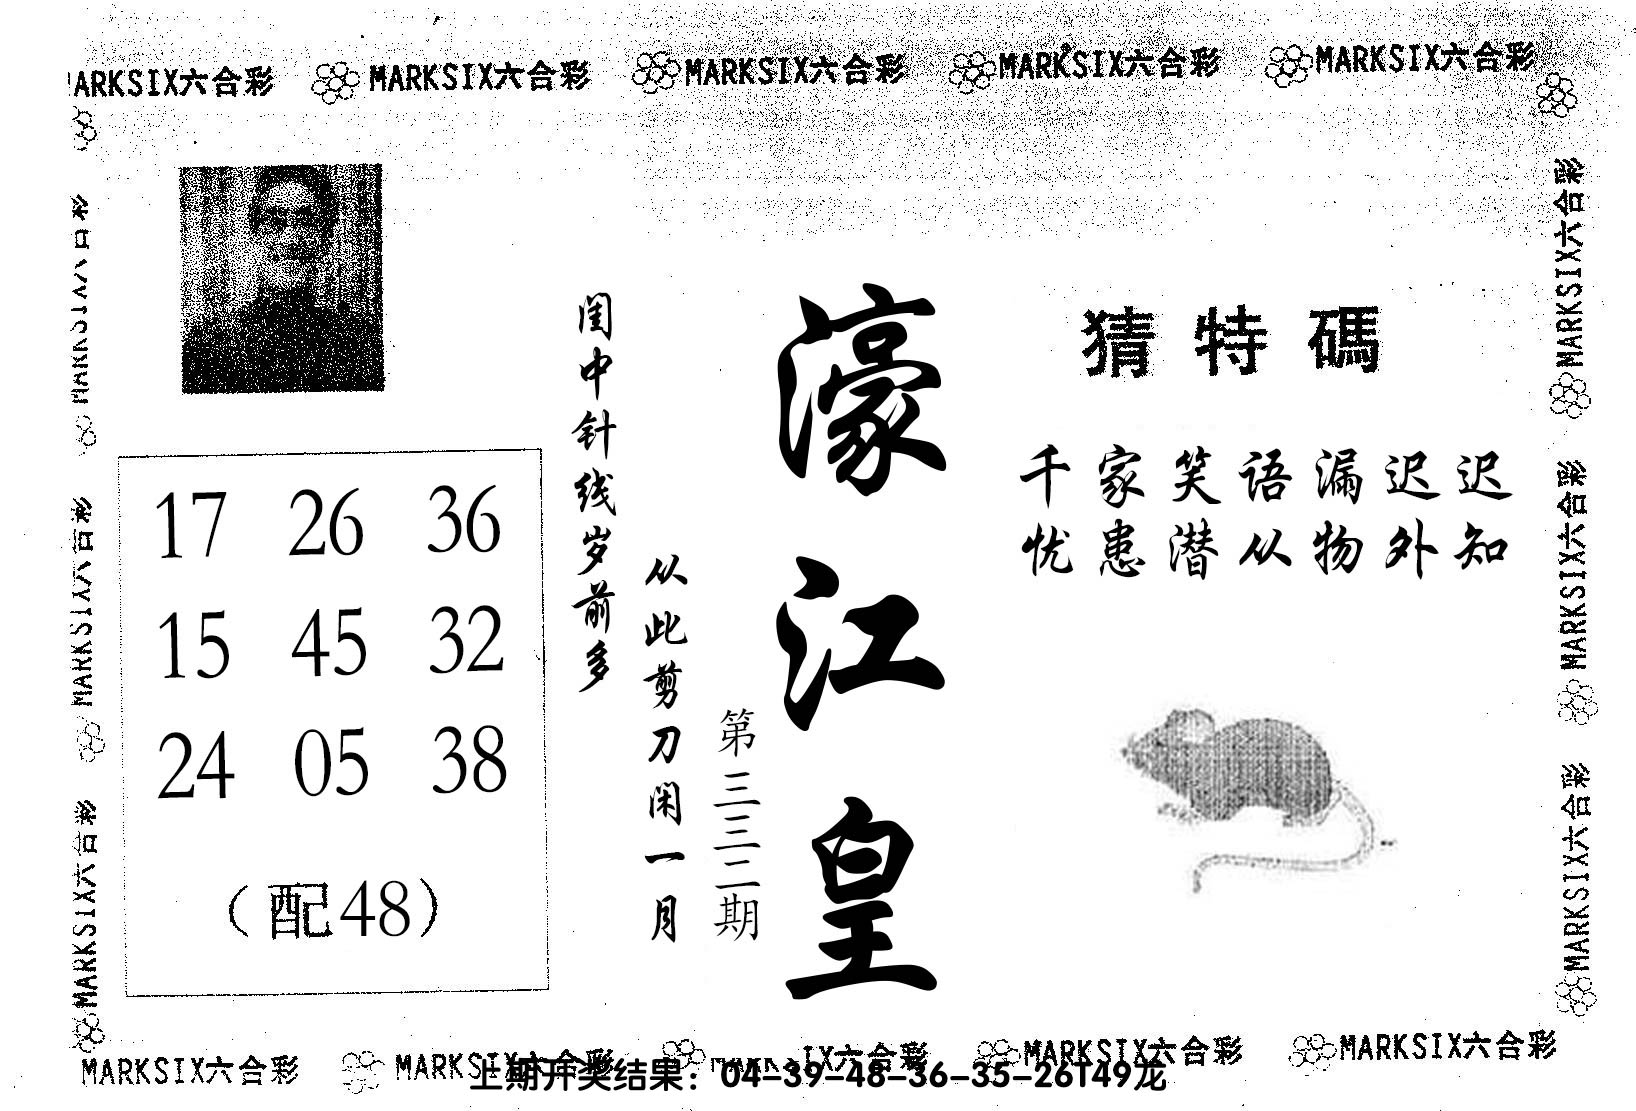 MARKSIX六合彩 MARKSIX六合彩 MARKSIX六合彩 MARKSIX六合彩 MARKSIX六合彩
猜特碼
千家笑语漏迟迟
忧患潜从物外知
濠江皇
第三三二期
闺中针线岁前多
从此剪刀闲一月
17 26 36
15 45 32
24 05 38
（配48）
MARKSIX六合彩
MARKSIX六合彩
MARKSIX六合彩
MARKSIX六合彩
MARKSIX六合彩
MARKSIX六合彩
MARKSIX六合彩 MARKSIX六合彩 IX六合彩 MARKSIX六合彩 MARKSIX六合彩
上期开奖结果：04-39-48-36-35-26T49龙